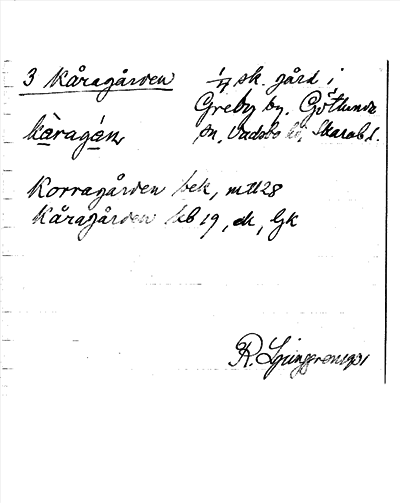 3 Kåragården 1/4 sk. gård i
Greby by, Götlunda
kàragán, sn, Vadsbo hd, Skarab. l.
Korragården bek, mtl 28
Kåragården leb 19, ek, Gk
R. Ljunggren 1931